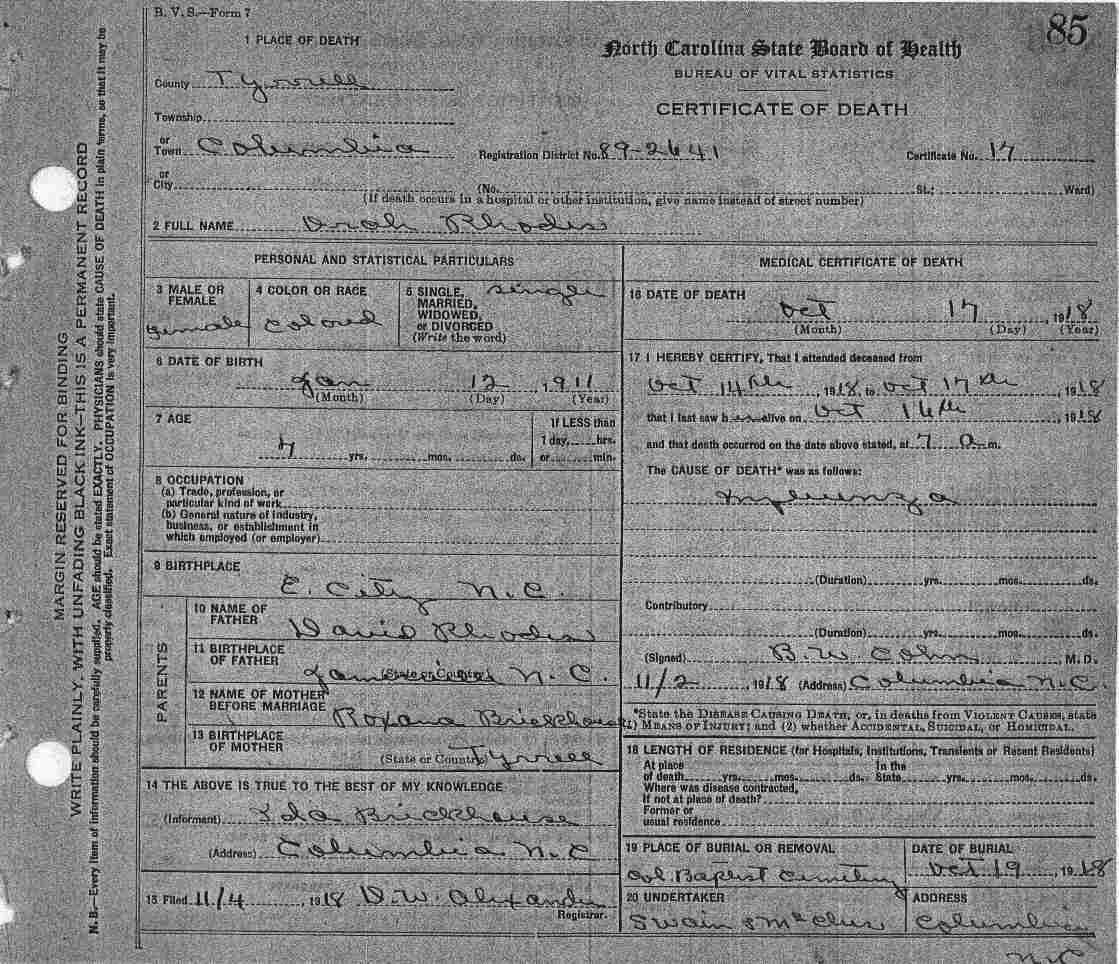 B. V. S.—Form 7
85
1 PLACE OF DEATH
North Carolina State Board of Health
BUREAU OF VITAL STATISTICS
CERTIFICATE OF DEATH
County Tyrrell
Township
or
Town Columbia Registration District No. 89-2641 Certificate No. 17
or
City (No. St.; Ward)
(If death occurs in a hospital or other institution, give name instead of street number)
2 FULL NAME Orah Rhodes
PERSONAL AND STATISTICAL PARTICULARS
3 MALE OR FEMALE
female
4 COLOR OR RACE
Colored
5 SINGLE, single
MARRIED,
WIDOWED,
or DIVORCED
(Write the word)
6 DATE OF BIRTH
Jan 12, 1911
(Month) (Day) (Year)
7 AGE
If LESS than
7 yrs. mos. ds. 1 day, hrs.
or min.
8 OCCUPATION
(a) Trade, profession, or
particular kind of work
(b) General nature of industry,
business, or establishment in
which employed (or employer)
9 BIRTHPLACE
E. City N.C.
PARENTS
10 NAME OF FATHER
David Rhodes
11 BIRTHPLACE OF FATHER
N. C.
12 NAME OF MOTHER BEFORE MARRIAGE
Roxana Brickhouse
13 BIRTHPLACE OF MOTHER
(State or Country) Tyrrell
14 THE ABOVE IS TRUE TO THE BEST OF MY KNOWLEDGE
(Informant) Ida Brickhouse
(Address) Columbia N.C
15 Filed 11/4, 1918 D.W. Alexander
Registrar.
MEDICAL CERTIFICATE OF DEATH
16 DATE OF DEATH
Oct 17, 1918
(Month) (Day) (Year)
17 I HEREBY CERTIFY, That I attended deceased from
Oct 14th, 1918, to Oct 17th, 1918
that I last saw her alive on Oct 16th, 1918
and that death occurred on the date above stated, at 7 a m.
The CAUSE OF DEATH* was as follows:
Influenza
(Duration) yrs. mos. ds.
Contributory
(Duration) yrs. mos. ds.
(Signed) B.W. Cohn, M.D.
11/2, 1918 (Address) Columbia N.C.
*State the DISEASE CAUSING DEATH, or, in deaths from VIOLENT CAUSES, state
(1) MEANS OF INJURY; and (2) whether ACCIDENTAL, SUICIDAL, or HOMICIDAL.
18 LENGTH OF RESIDENCE (for Hospitals, Institutions, Transients or Recent Residents)
At place In the
of death yrs. mos. ds. State yrs. mos. ds.
Where was disease contracted,
If not at place of death?
Former or
usual residence
19 PLACE OF BURIAL OR REMOVAL
Col Baptist Cemetery
DATE OF BURIAL
Oct 19, 1918
20 UNDERTAKER
Swain & McClees
ADDRESS
Columbia
N.C
MARGIN RESERVED FOR BINDING
WRITE PLAINLY, WITH UNFADING BLACK INK—THIS IS A PERMANENT RECORD
N. B.—Every item of information should be carefully supplied. AGE should be stated EXACTLY. PHYSICIANS should state CAUSE OF DEATH in plain terms, so that it may be
properly classified. Exact statement of OCCUPATION is very important.